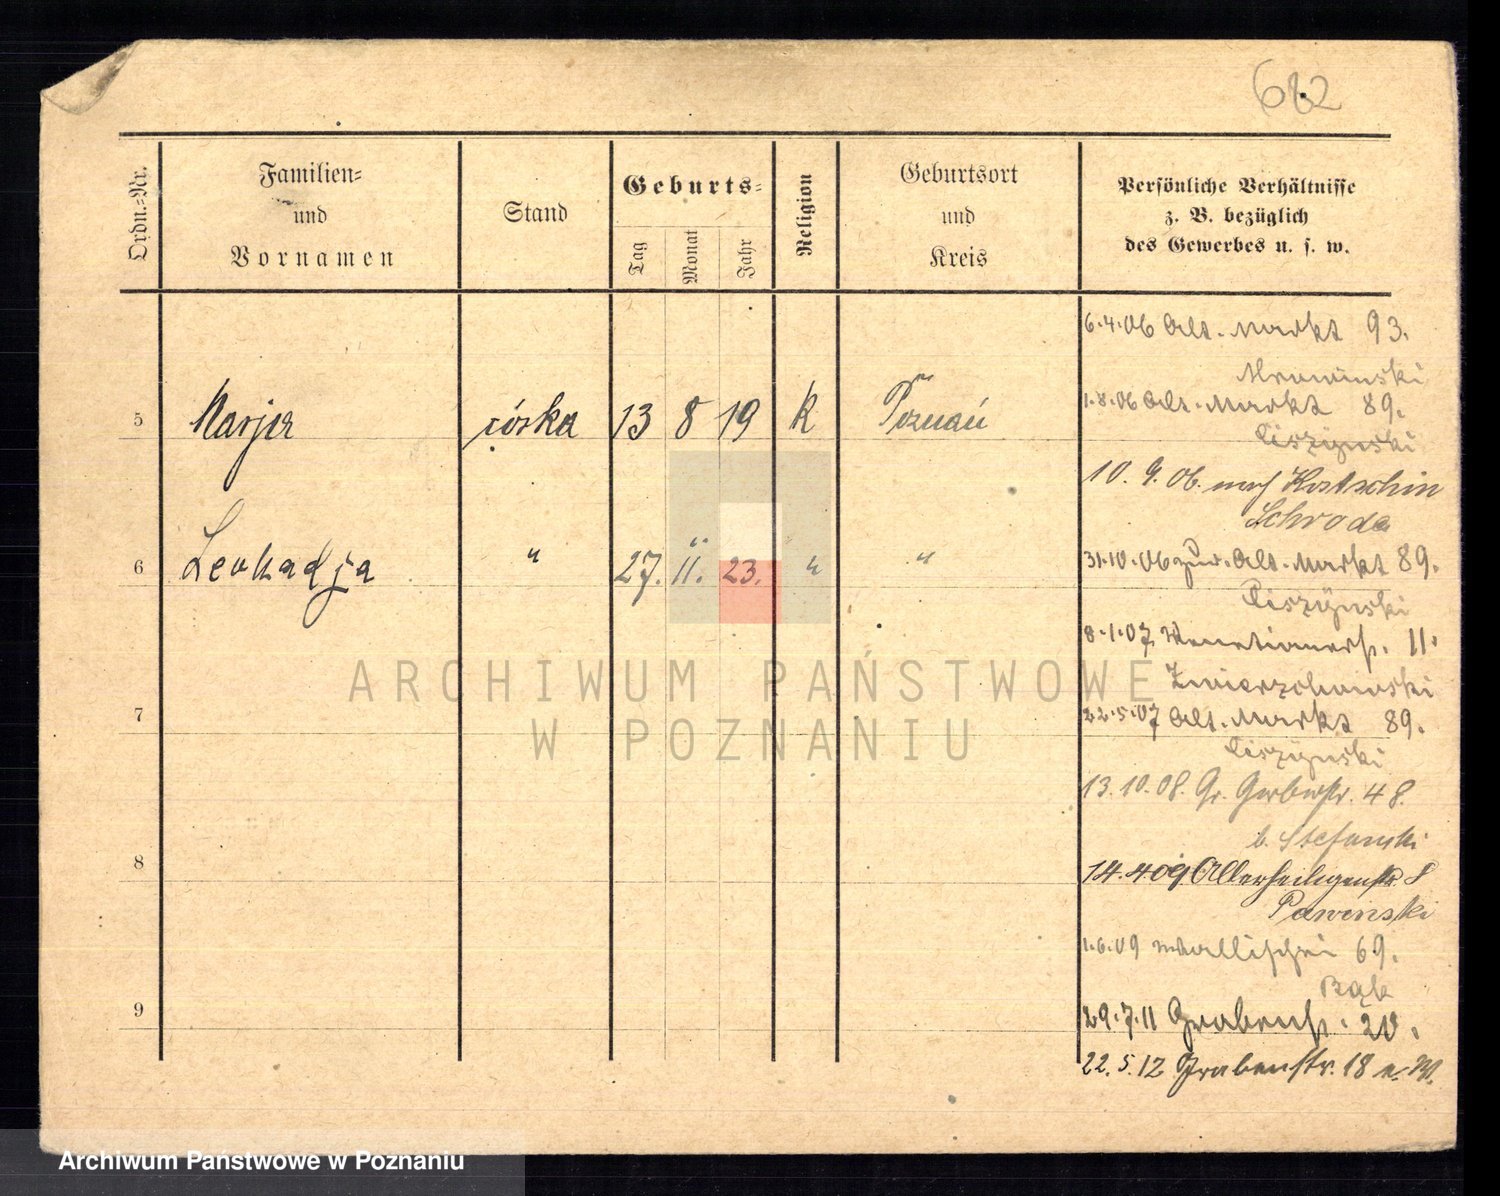 682
Ordn.-Nr.
Familien-
und
Vornamen
Stand
Geburts-
Tag
Monat
Jahr
Religion
Geburtsort
und
Kreis
Persönliche Verhältnisse
z. B. bezüglich
des Gewerbes u. s. w.
6.4.06 Alt. Markt 93.
Mrowinski
1.8.06 Alt. Markt 89.
5 Marja córka 13 8 19 K Poznań
Ciszynski
10. 9. 06. nach Kostschin
Schroda
6 Leokadja " 27. 11. 23. " "
31.10.06 zur. Alt. Markt 89.
Ciszynski
8.1.07 Venetianerstr. 11.
Zwierzchowski
7
22.5.07 Alt. Markt 89.
Ciszynski
13.10.08. Gr. Gerberstr. 48.
b. Stefanski
8
14.4 09 Allerheiligenstr. 8
Pawenski
1.6.09 Wallischei 69.
Bąk
9
29.7.11 Grabenstr. 20.
22.5.12 Grabenstr. 18 e. W.
ARCHIWUM PAŃSTWOWE
W POZNANIU
Archiwum Państwowe w Poznaniu